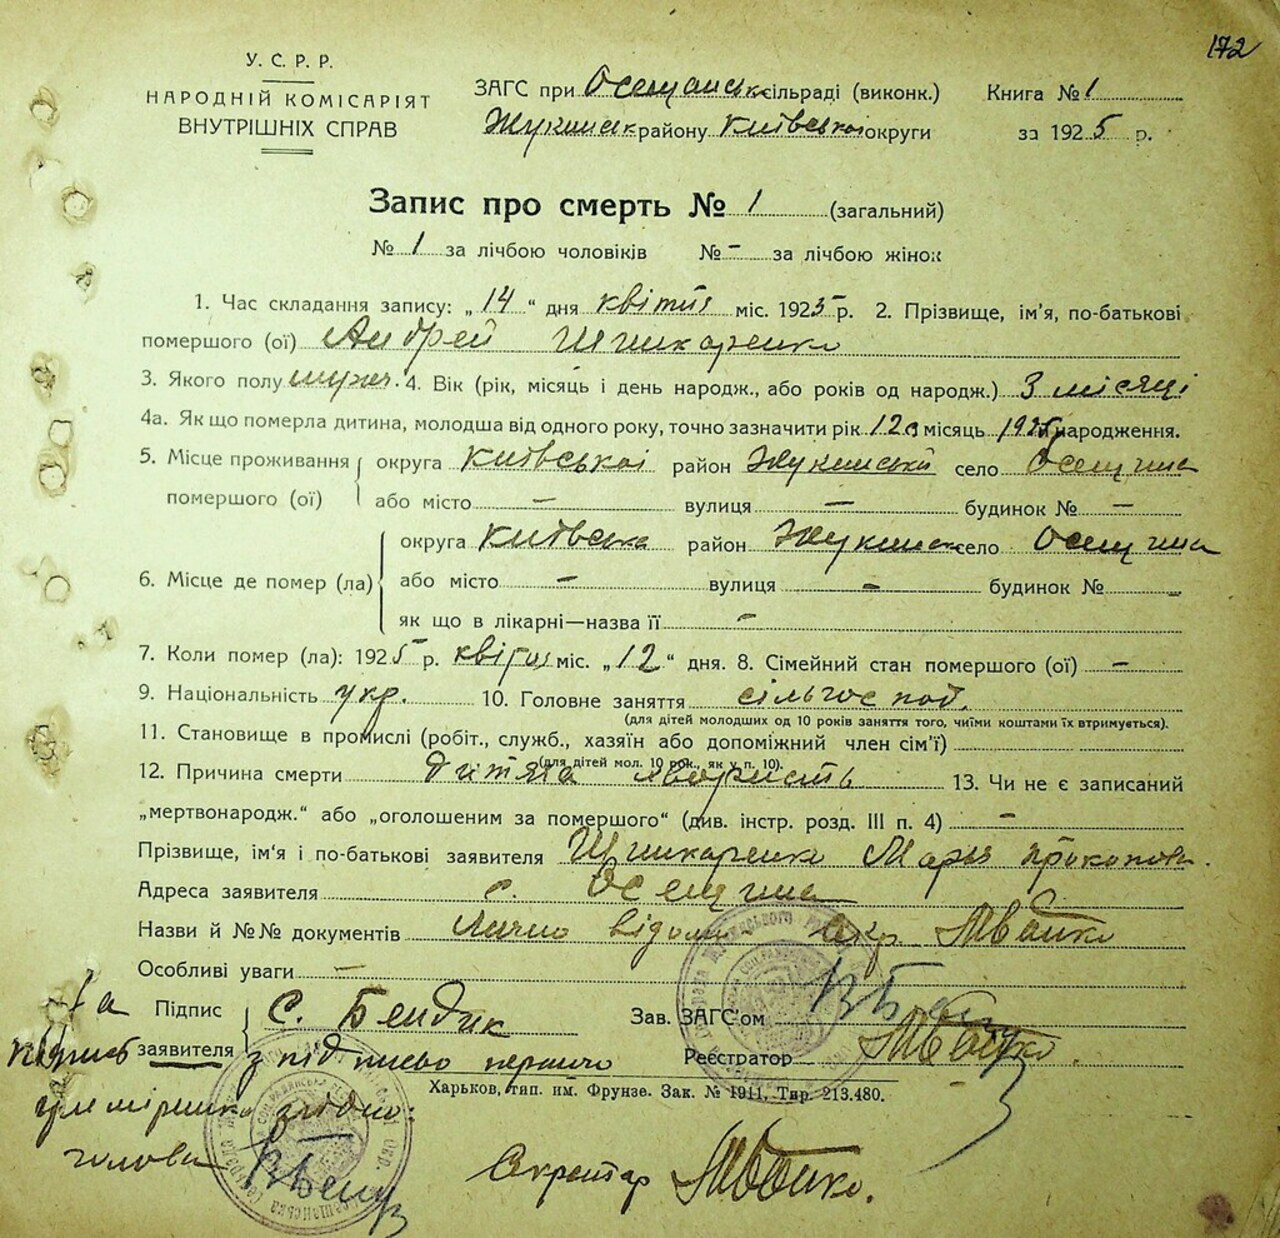 172
У. С. Р. Р.
НАРОДНІЙ КОМІСАРІЯТ
ВНУТРІШНІХ СПРАВ
ЗАГС при Осещинськ сільраді (виконк.)
Книга № 1
Жукинськ району Київської округи
за 1925 р.
Запис про смерть № 1 (загальний)
№ 1 за лічбою чоловіків № - за лічбою жінок
1. Час складання запису: „14“ дня квітня міс. 1925 р. 2. Прізвище, ім'я, по-батькові
помершого (ої) Андрей Шпикаренко
3. Якого полу 4. Вік (рік, місяць і день народж., або років од народж.) 3 місяці
4а. Як що померла дитина, молодша від одного року, точно зазначити рік місяць народження.
5. Місце проживання помершого (ої)
округа Київської район Жукинський село Осещина
або місто — вулиця — будинок № —
6. Місце де помер (ла)
округа Київська район Жукинськ село Осещина
або місто — вулиця — будинок № —
як що в лікарні—назва її —
7. Коли помер (ла): 1925 р. квітня міс. „12“ дня. 8. Сімейний стан помершого (ої) —
9. Національність укр. 10. Головне заняття сільгоспод.
(для дітей молодших од 10 років заняття того, чиїми коштами їх втримується).
11. Становище в промислі (робіт., служб., хазяїн або допоміжний член сім'ї)
(для дітей мол. 10 рок., як у п. 10).
12. Причина смерти 13. Чи не є записаний
„мертвонародж.“ або „оголошеним за помершого“ (див. інстр. розд. III п. 4) —
Прізвище, ім'я і по-батькові заявителя Шпикаренко Марія Прокоповн.
Адреса заявителя с. Осещина
Назви й №№ документів Лично відома Секр.
Особливі уваги —
Підпис заявителя
С. Бендик
Зав. ЗАГС'ом
Реєстратор
Харьков, тип. им. Фрунзе. Зак. № 1911. Тир. 213.480.
голова
Секретар